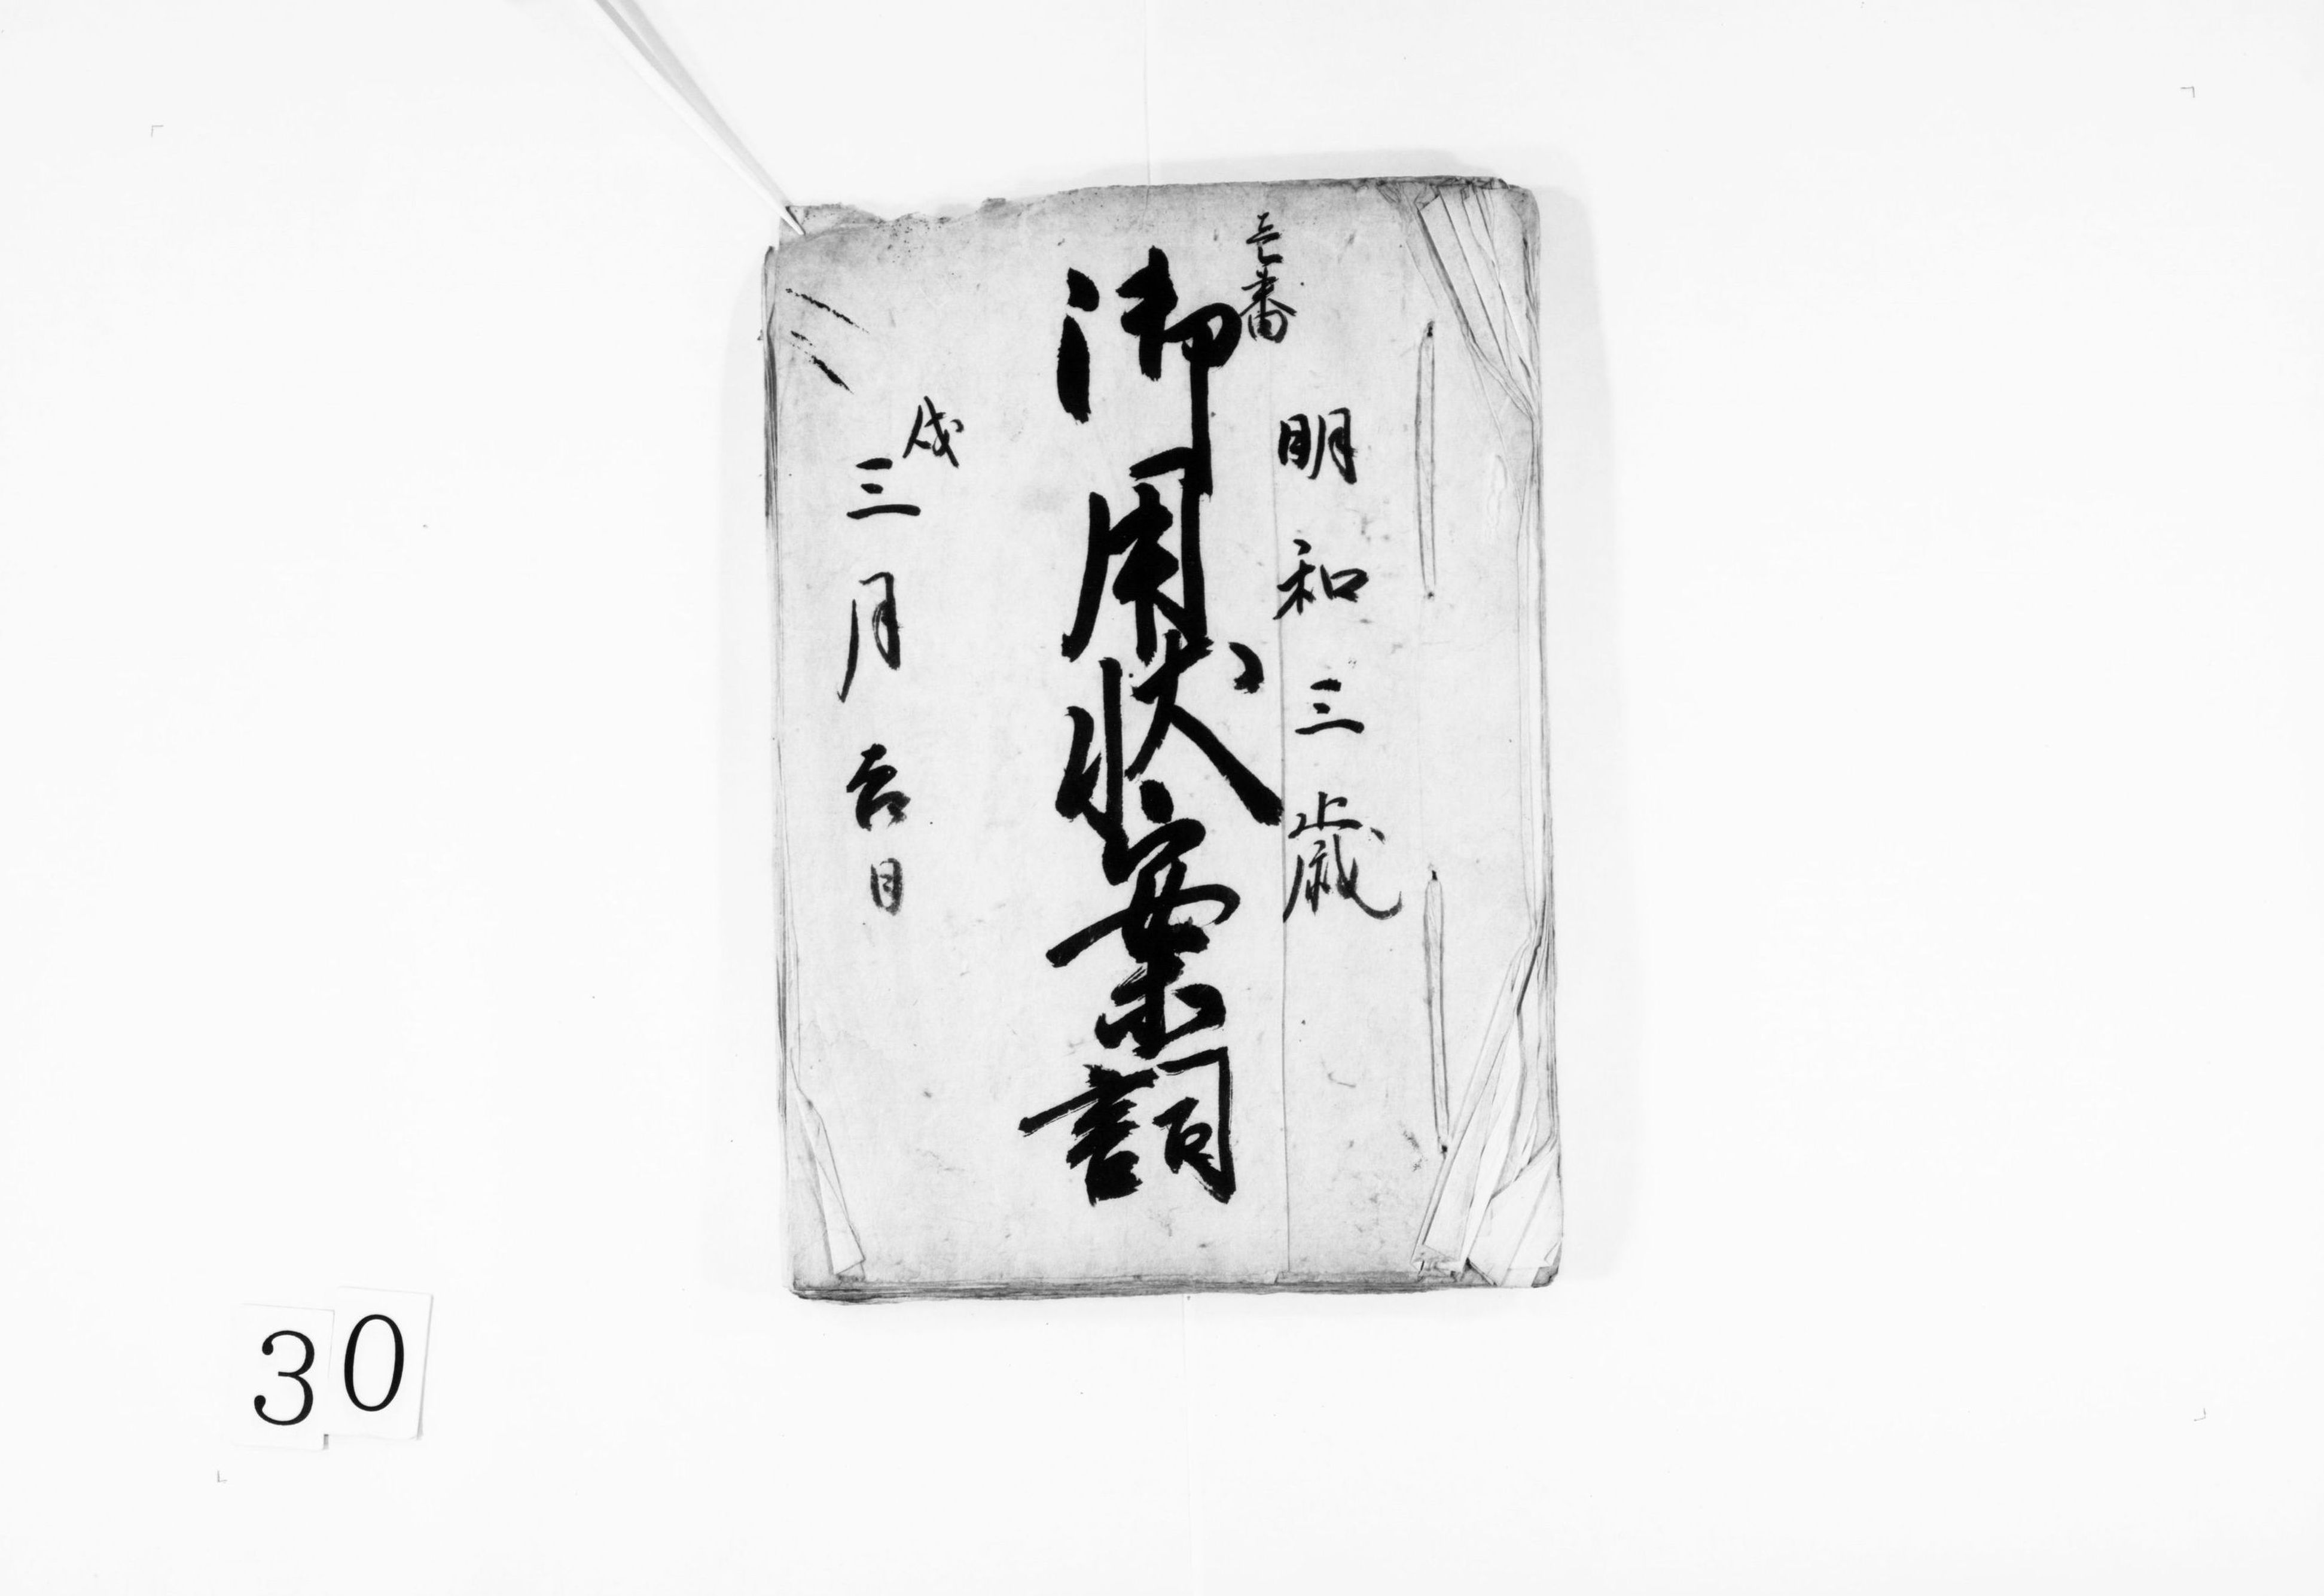 壱番
明和三歳
御用状案詞
戌
三月吉日
30